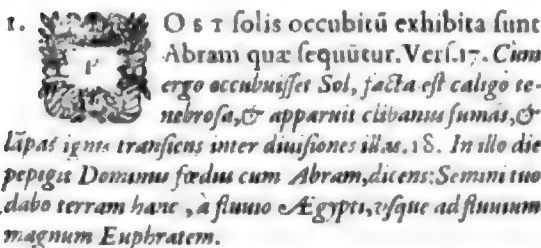 1. POST ſolis occubitū exhibita ſunt
Abram quæ ſequūtur. Verſ. 17. Cùm
ergo occubuiſſet Sol, facta eſt caligo te-
nebroſa, & apparuit clibanus fumās, &
lāpas ignis tranſiens inter diuiſiones illas. 18. In illo die
pepigit Dominus fœdus cum Abram, dicens: Semini tuo
dabo terram hanc, à fluuio Ægypti, vſque ad fluuium
magnum Euphratem.